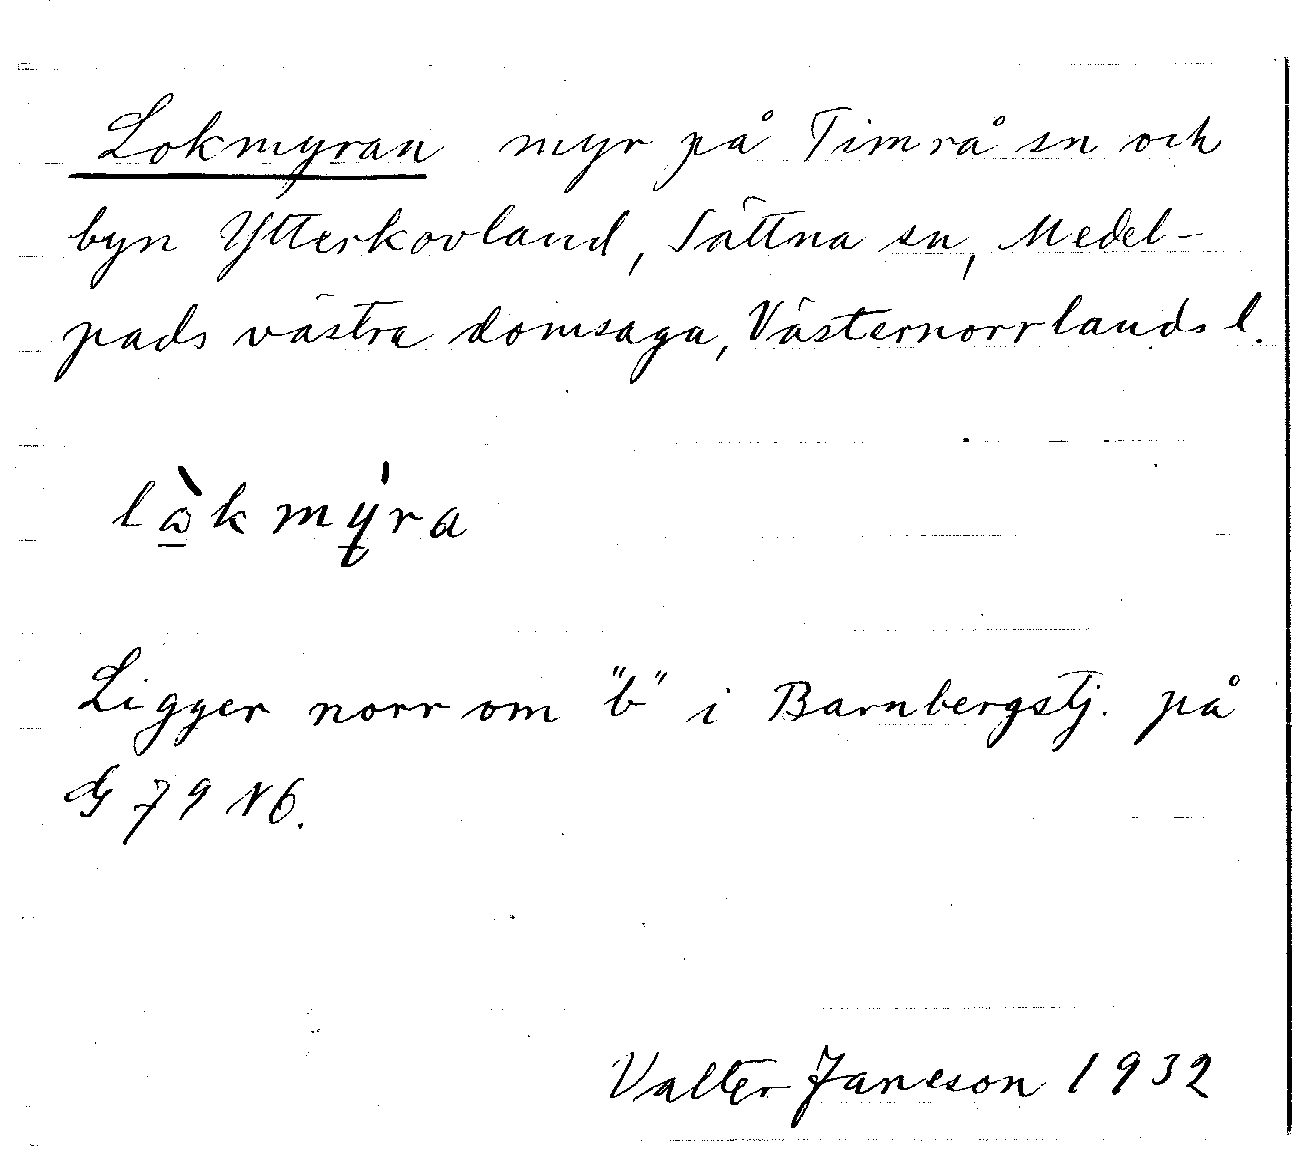 Lokmyran myr på Timrå sn och
byn Ytterkovland, Sättna sn, Medel-
pads västra domsaga, Västernorrlands l.
làkmýra
Ligger norr om "b" i Barnbergstj. på
G 79 N6.
Valter Janeson 1932